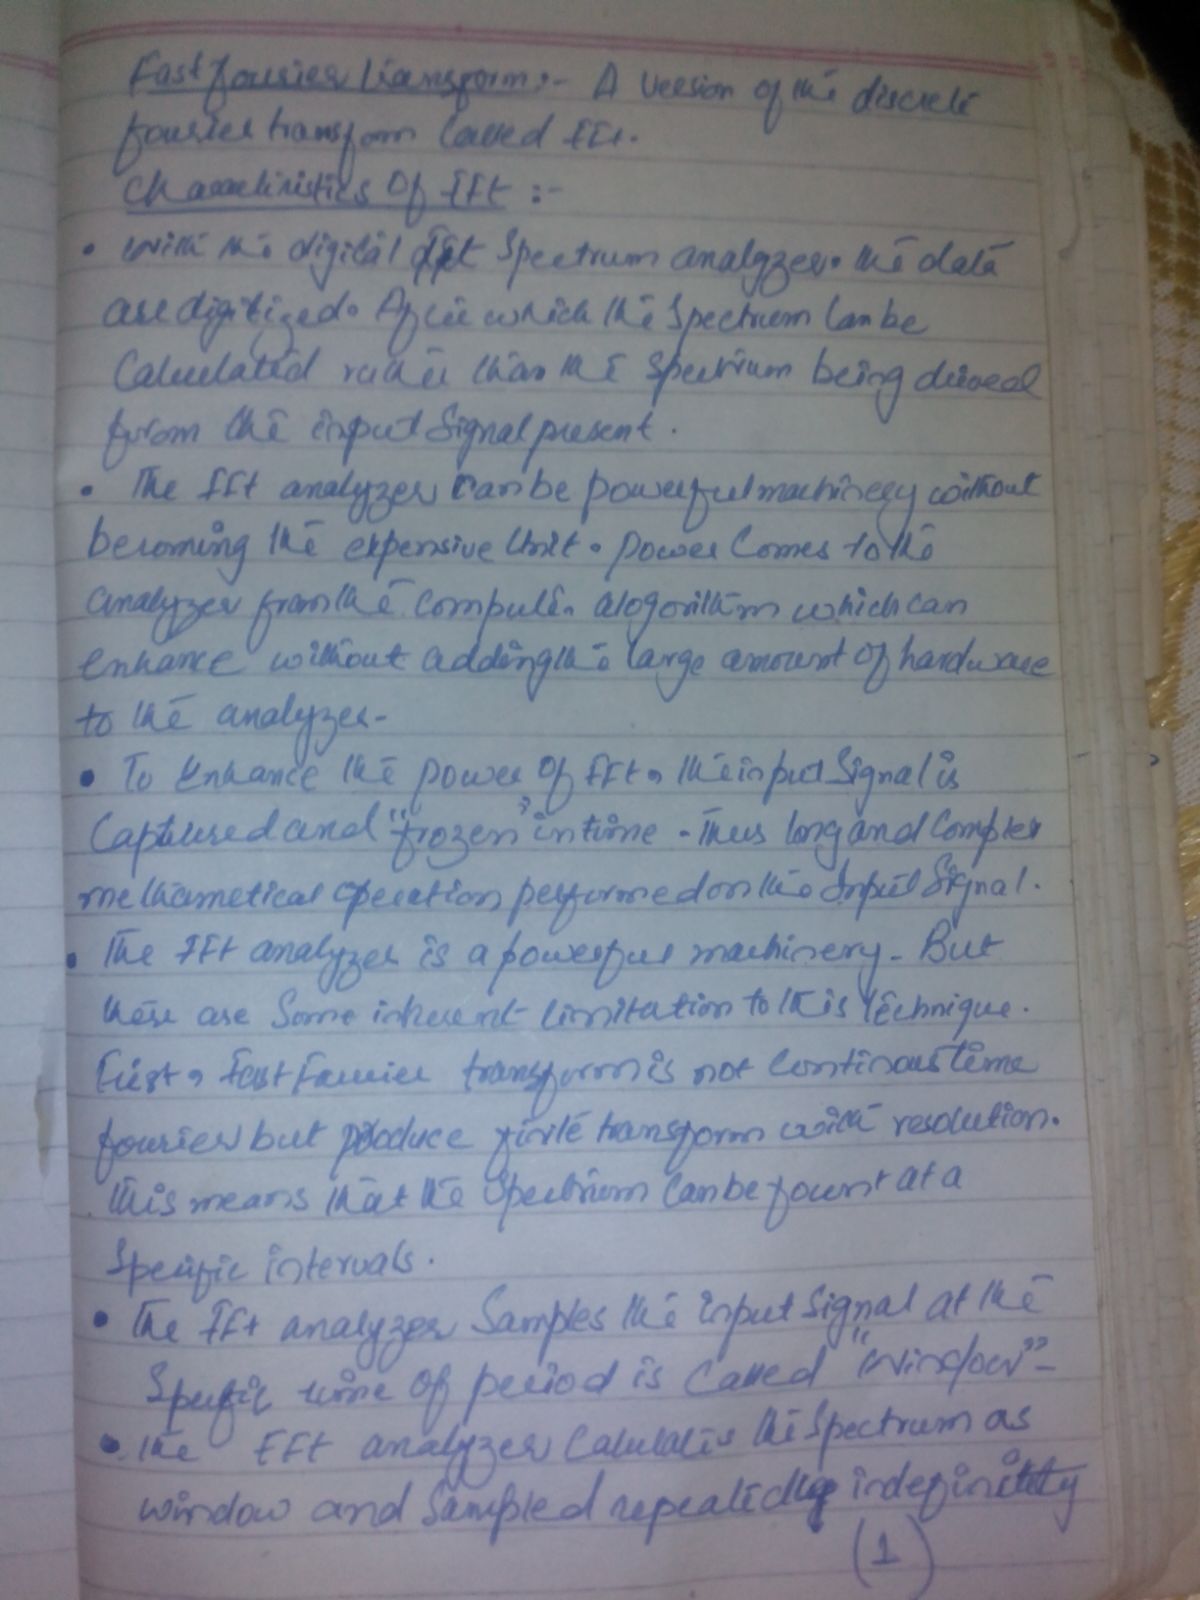 Fast fourier transform:- A version of the discrete
fourier transform called fft.
Characteristics Of fft :-
• with the digital fft Spectrum analyzer. the data
are digitized. After which the Spectrum can be
Calculated rather than the Spectrum being derived
from the input Signal present.
• The fft analyzer can be powerful machinery without
becoming the expensive Unit. power comes to the
analyzer from the compute. alogorithm which can
enhance without adding the large amount of hardware
to the analyzer-
• To Enhance the power Of fft, the input Signal is
Captured and "frozen" in time - Thus long and Complex
methametical operation performed on the Input Signal.
• The FFt analyzer is a powerful machinery. But
there are Some inherent limitation to this technique.
First, Fast Fourier transform is not Continous time
fourier but produce finite transform with resolution.
this means that the Spectrum can be fount at a
Specific intervals.
• The FFt analyzer Samples the input Signal at the
Specific time Of period is Called "window"-
• the FFt analyzer Calulates the Spectrum as
window and Sampled repeatidly indefinitely
(1)